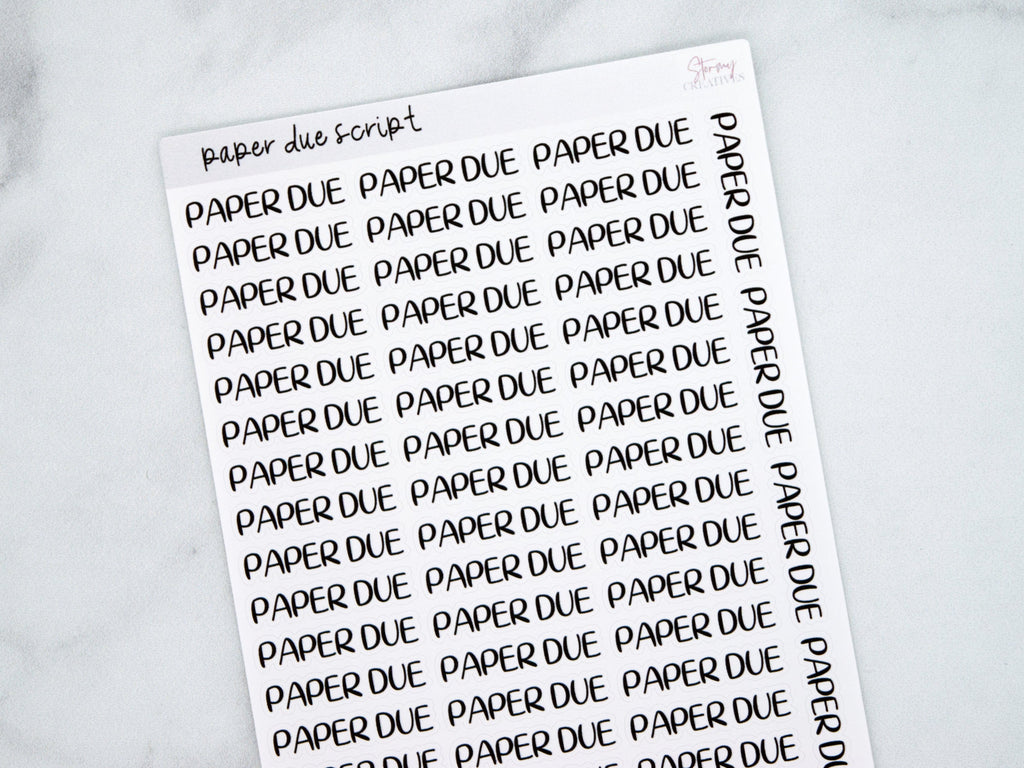 paper due script
Stormy
CREATIVES
PAPER DUE PAPER DUE PAPER DUE
PAPER DUE PAPER DUE PAPER DUE
PAPER DUE PAPER DUE PAPER DUE
PAPER DUE PAPER DUE PAPER DUE
PAPER DUE PAPER DUE PAPER DUE
PAPER DUE PAPER DUE PAPER DUE
PAPER DUE PAPER DUE PAPER DUE
PAPER DUE PAPER DUE PAPER DUE
PAPER DUE PAPER DUE PAPER DUE
PAPER DUE PAPER DUE PAPER DUE
PAPER DUE PAPER DUE PAPER DUE
PAPER DUE PAPER DUE PAPER DUE
PAPER DUE PAPER DUE PAPER DUE
PAPER DUE PAPER DUE PAPER DUE
PAPER DUE
PAPER DUE
PAPER DUE
PAPER DUE
PAPER